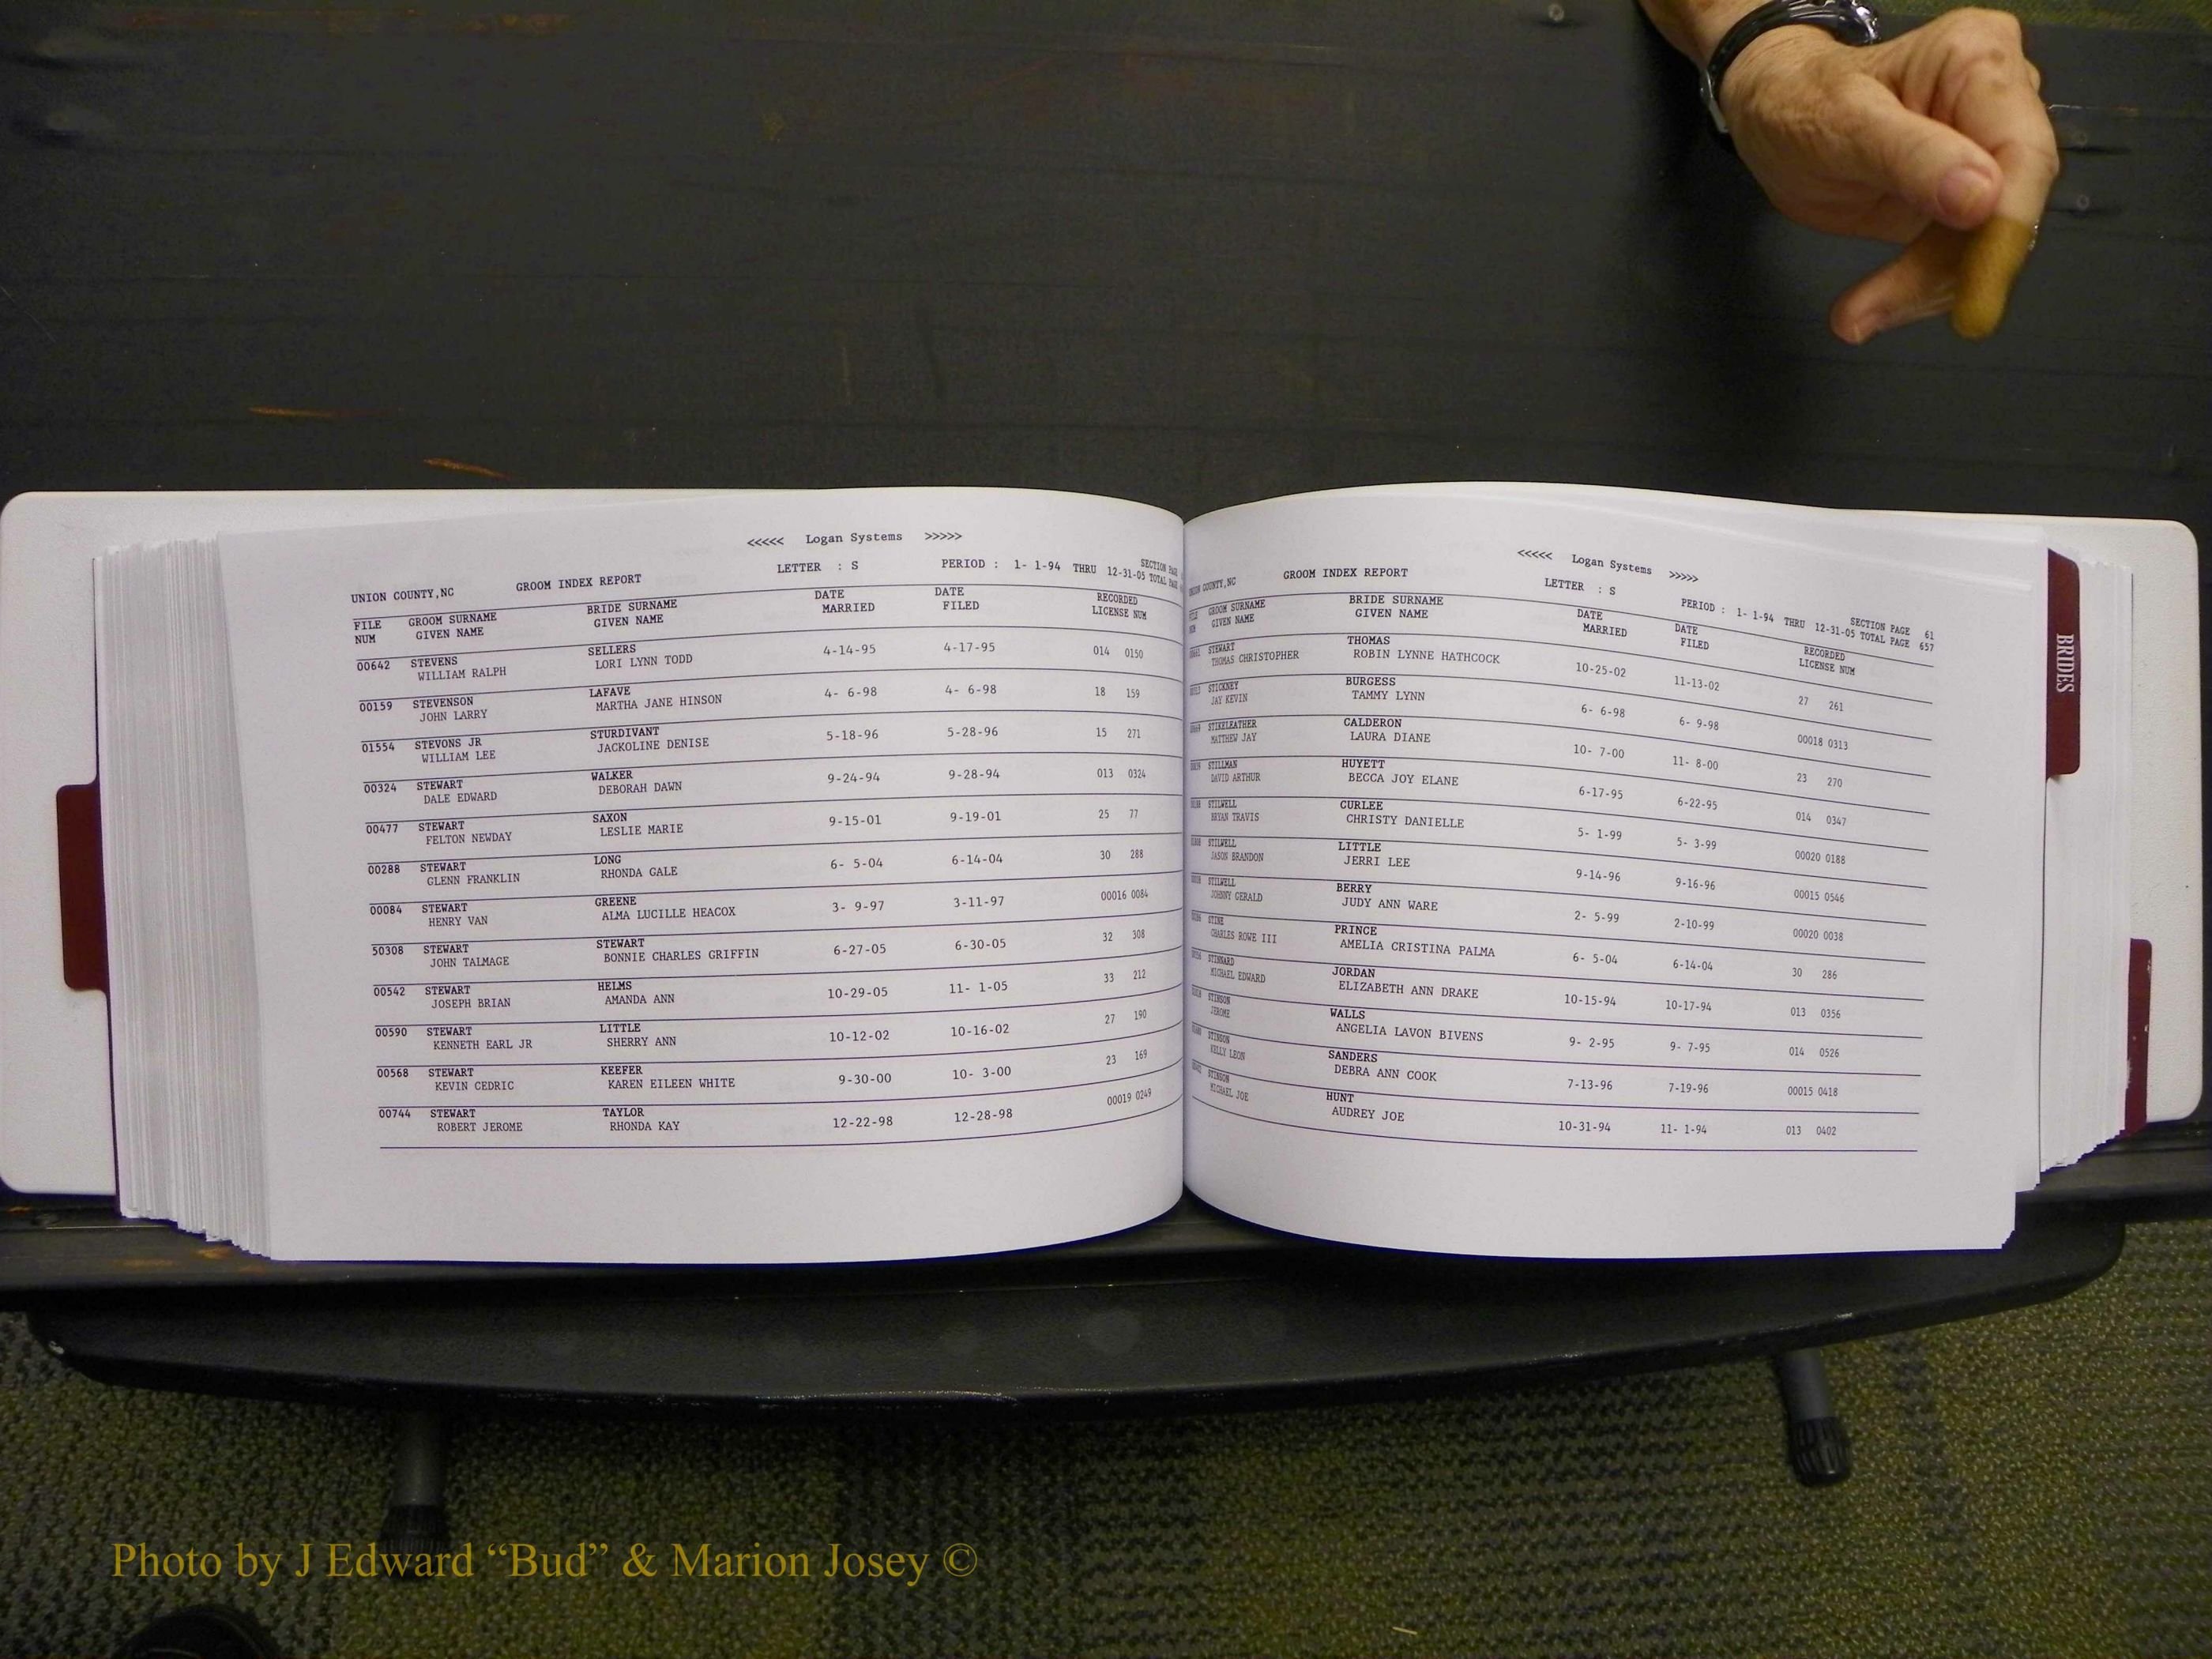 <<<<< Logan Systems >>>>>
UNION COUNTY,NC GROOM INDEX REPORT LETTER : S PERIOD : 1- 1-94 THRU 12-31-05 SECTION PAGE TOTAL PAGE
FILE GROOM SURNAME BRIDE SURNAME DATE DATE RECORDED
NUM GIVEN NAME GIVEN NAME MARRIED FILED LICENSE NUM
00642 STEVENS SELLERS 4-14-95 4-17-95 014 0150
WILLIAM RALPH LORI LYNN TODD
00159 STEVENSON LAFAVE 4- 6-98 4- 6-98 18 159
JOHN LARRY MARTHA JANE HINSON
01554 STEVONS JR STURDIVANT 5-18-96 5-28-96 15 271
WILLIAM LEE JACKOLINE DENISE
00324 STEWART WALKER 9-24-94 9-28-94 013 0324
DALE EDWARD DEBORAH DAWN
00477 STEWART SAXON 9-15-01 9-19-01 25 77
FELTON NEWDAY LESLIE MARIE
00288 STEWART LONG 6- 5-04 6-14-04 30 288
GLENN FRANKLIN RHONDA GALE
00084 STEWART GREENE 3- 9-97 3-11-97 00016 0084
HENRY VAN ALMA LUCILLE HEACOX
50308 STEWART STEWART 6-27-05 6-30-05 32 308
JOHN TALMAGE BONNIE CHARLES GRIFFIN
00542 STEWART HELMS 10-29-05 11- 1-05 33 212
JOSEPH BRIAN AMANDA ANN
00590 STEWART LITTLE 10-12-02 10-16-02 27 190
KENNETH EARL JR SHERRY ANN
00568 STEWART KEEFER 9-30-00 10- 3-00 23 169
KEVIN CEDRIC KAREN EILEEN WHITE
00744 STEWART TAYLOR 12-22-98 12-28-98 00019 0249
ROBERT JEROME RHONDA KAY
<<<<< Logan Systems >>>>>
UNION COUNTY,NC GROOM INDEX REPORT LETTER : S PERIOD : 1- 1-94 THRU 12-31-05 SECTION PAGE 61 TOTAL PAGE 657
FILE GROOM SURNAME BRIDE SURNAME DATE DATE RECORDED
NUM GIVEN NAME GIVEN NAME MARRIED FILED LICENSE NUM
STEWART THOMAS 10-25-02 11-13-02 27 261
THOMAS CHRISTOPHER ROBIN LYNNE HATHCOCK
STICKNEY BURGESS 6- 6-98 6- 9-98 00018 0313
JAY KEVIN TAMMY LYNN
STIKELEATHER CALDERON 10- 7-00 11- 8-00 23 270
MATTHEW JAY LAURA DIANE
STILLMAN HUYETT 6-17-95 6-22-95 014 0347
DAVID ARTHUR BECCA JOY ELANE
STILWELL CURLEE 5- 1-99 5- 3-99 00020 0188
BRYAN TRAVIS CHRISTY DANIELLE
STILWELL LITTLE 9-14-96 9-16-96 00015 0546
JASON BRANDON JERRI LEE
STILWELL BERRY 2- 5-99 2-10-99 00020 0038
JOHNNY GERALD JUDY ANN WARE
STINE PRINCE 6- 5-04 6-14-04 30 286
CHARLES ROWE III AMELIA CRISTINA PALMA
STINNARD JORDAN 10-15-94 10-17-94 013 0356
MICHAEL EDWARD ELIZABETH ANN DRAKE
STINSON WALLS 9- 2-95 9- 7-95 014 0526
JEROME ANGELIA LAVON BIVENS
STINSON SANDERS 7-13-96 7-19-96 00015 0418
KELLY LEON DEBRA ANN COOK
STINSON HUNT 10-31-94 11- 1-94 013 0402
MICHAEL JOE AUDREY JOE
BRIDES
Photo by J Edward “Bud” & Marion Josey ©